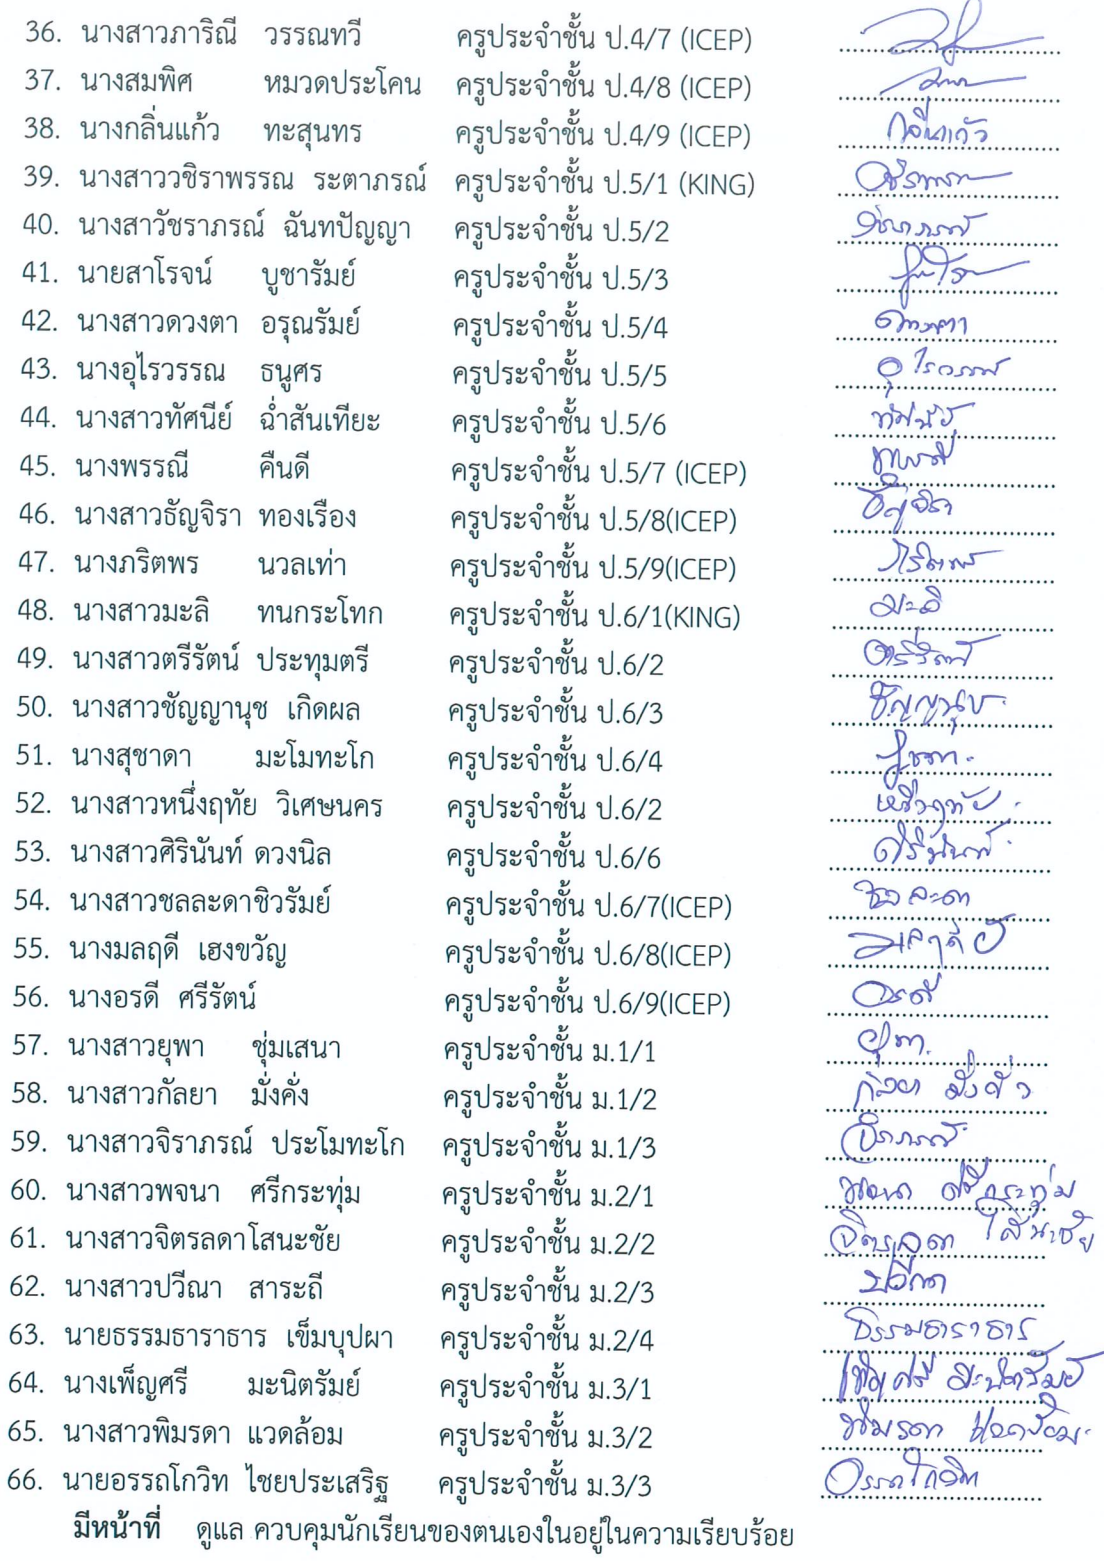 36. นางสาวภาริณี วรรณทวี ครูประจำชั้น ป.4/7 (ICEP)
37. นางสมพิศ หมวดประโคน ครูประจำชั้น ป.4/8 (ICEP)
38. นางกลิ่นแก้ว ทะสุนทร ครูประจำชั้น ป.4/9 (ICEP) กลิ่นแก้ว
39. นางสาววชิราพรรณ ระตาภรณ์ ครูประจำชั้น ป.5/1 (KING)
40. นางสาวัชราภรณ์ ฉันทปัญญา ครูประจำชั้น ป.5/2
41. นายสาโรจน์ บูชารัมย์ ครูประจำชั้น ป.5/3
42. นางสาวดวงตา อรุณรัมย์ ครูประจำชั้น ป.5/4 ดวงตา
43. นางอุไรวรรณ ธนูศร ครูประจำชั้น ป.5/5 อุไรวรรณ
44. นางสาวทัศนีย์ ฉ่ำสันเทียะ ครูประจำชั้น ป.5/6 ทัศนีย์
45. นางพรรณี คืนดี ครูประจำชั้น ป.5/7 (ICEP)
46. นางสาวธัญจิรา ทองเรือง ครูประจำชั้น ป.5/8(ICEP) ธัญจิรา
47. นางภริตพร นวลเท่า ครูประจำชั้น ป.5/9(ICEP) ภริตพร
48. นางสาวมะลิ ทนกระโทก ครูประจำชั้น ป.6/1(KING) มะลิ
49. นางสาวตรีรัตน์ ประทุมตรี ครูประจำชั้น ป.6/2 ตรีรัตน์
50. นางสาวชัญญานุช เกิดผล ครูประจำชั้น ป.6/3
51. นางสุชาดา มะโมทะโก ครูประจำชั้น ป.6/4
52. นางสาวหนึ่งฤทัย วิเศษนคร ครูประจำชั้น ป.6/2 หนึ่งฤทัย
53. นางสาวศิรินันท์ ดวงนิล ครูประจำชั้น ป.6/6 ศิรินันท์
54. นางสาวชลละดาชิวรัมย์ ครูประจำชั้น ป.6/7(ICEP) ชลละดา
55. นางมลฤดี เฮงขวัญ ครูประจำชั้น ป.6/8(ICEP) มลฤดี
56. นางอรดี ศรีรัตน์ ครูประจำชั้น ป.6/9(ICEP) อรดี
57. นางสาวยุพา ชุ่มเสนา ครูประจำชั้น ม.1/1 ยุพา
58. นางสาวกัลยา มั่งคั่ง ครูประจำชั้น ม.1/2 กัลยา มั่งคั่ง
59. นางสาวจิราภรณ์ ประโมทะโก ครูประจำชั้น ม.1/3 จิราภรณ์
60. นางสาวพจนา ศรีกระทุ่ม ครูประจำชั้น ม.2/1 พจนา ศรีกระทุ่ม
61. นางสาวจิตรลดาโสนะชัย ครูประจำชั้น ม.2/2 จิตรลดา โสนะชัย
62. นางสาวปวีณา สาระถี ครูประจำชั้น ม.2/3 ปวีณา
63. นายธรรมธาราธาร เข็มบุปผา ครูประจำชั้น ม.2/4 ธรรมธาราธาร
64. นางเพ็ญศรี มะนิตรัมย์ ครูประจำชั้น ม.3/1 เพ็ญศรี มะนิตรัมย์
65. นางสาวพิมรดา แวดล้อม ครูประจำชั้น ม.3/2 พิมรดา แวดล้อม
66. นายอรรถโกวิท ไชยประเสริฐ ครูประจำชั้น ม.3/3 อรรถโกวิท
มีหน้าที่ ดูแล ควบคุมนักเรียนของตนเองในอยู่ในความเรียบร้อย